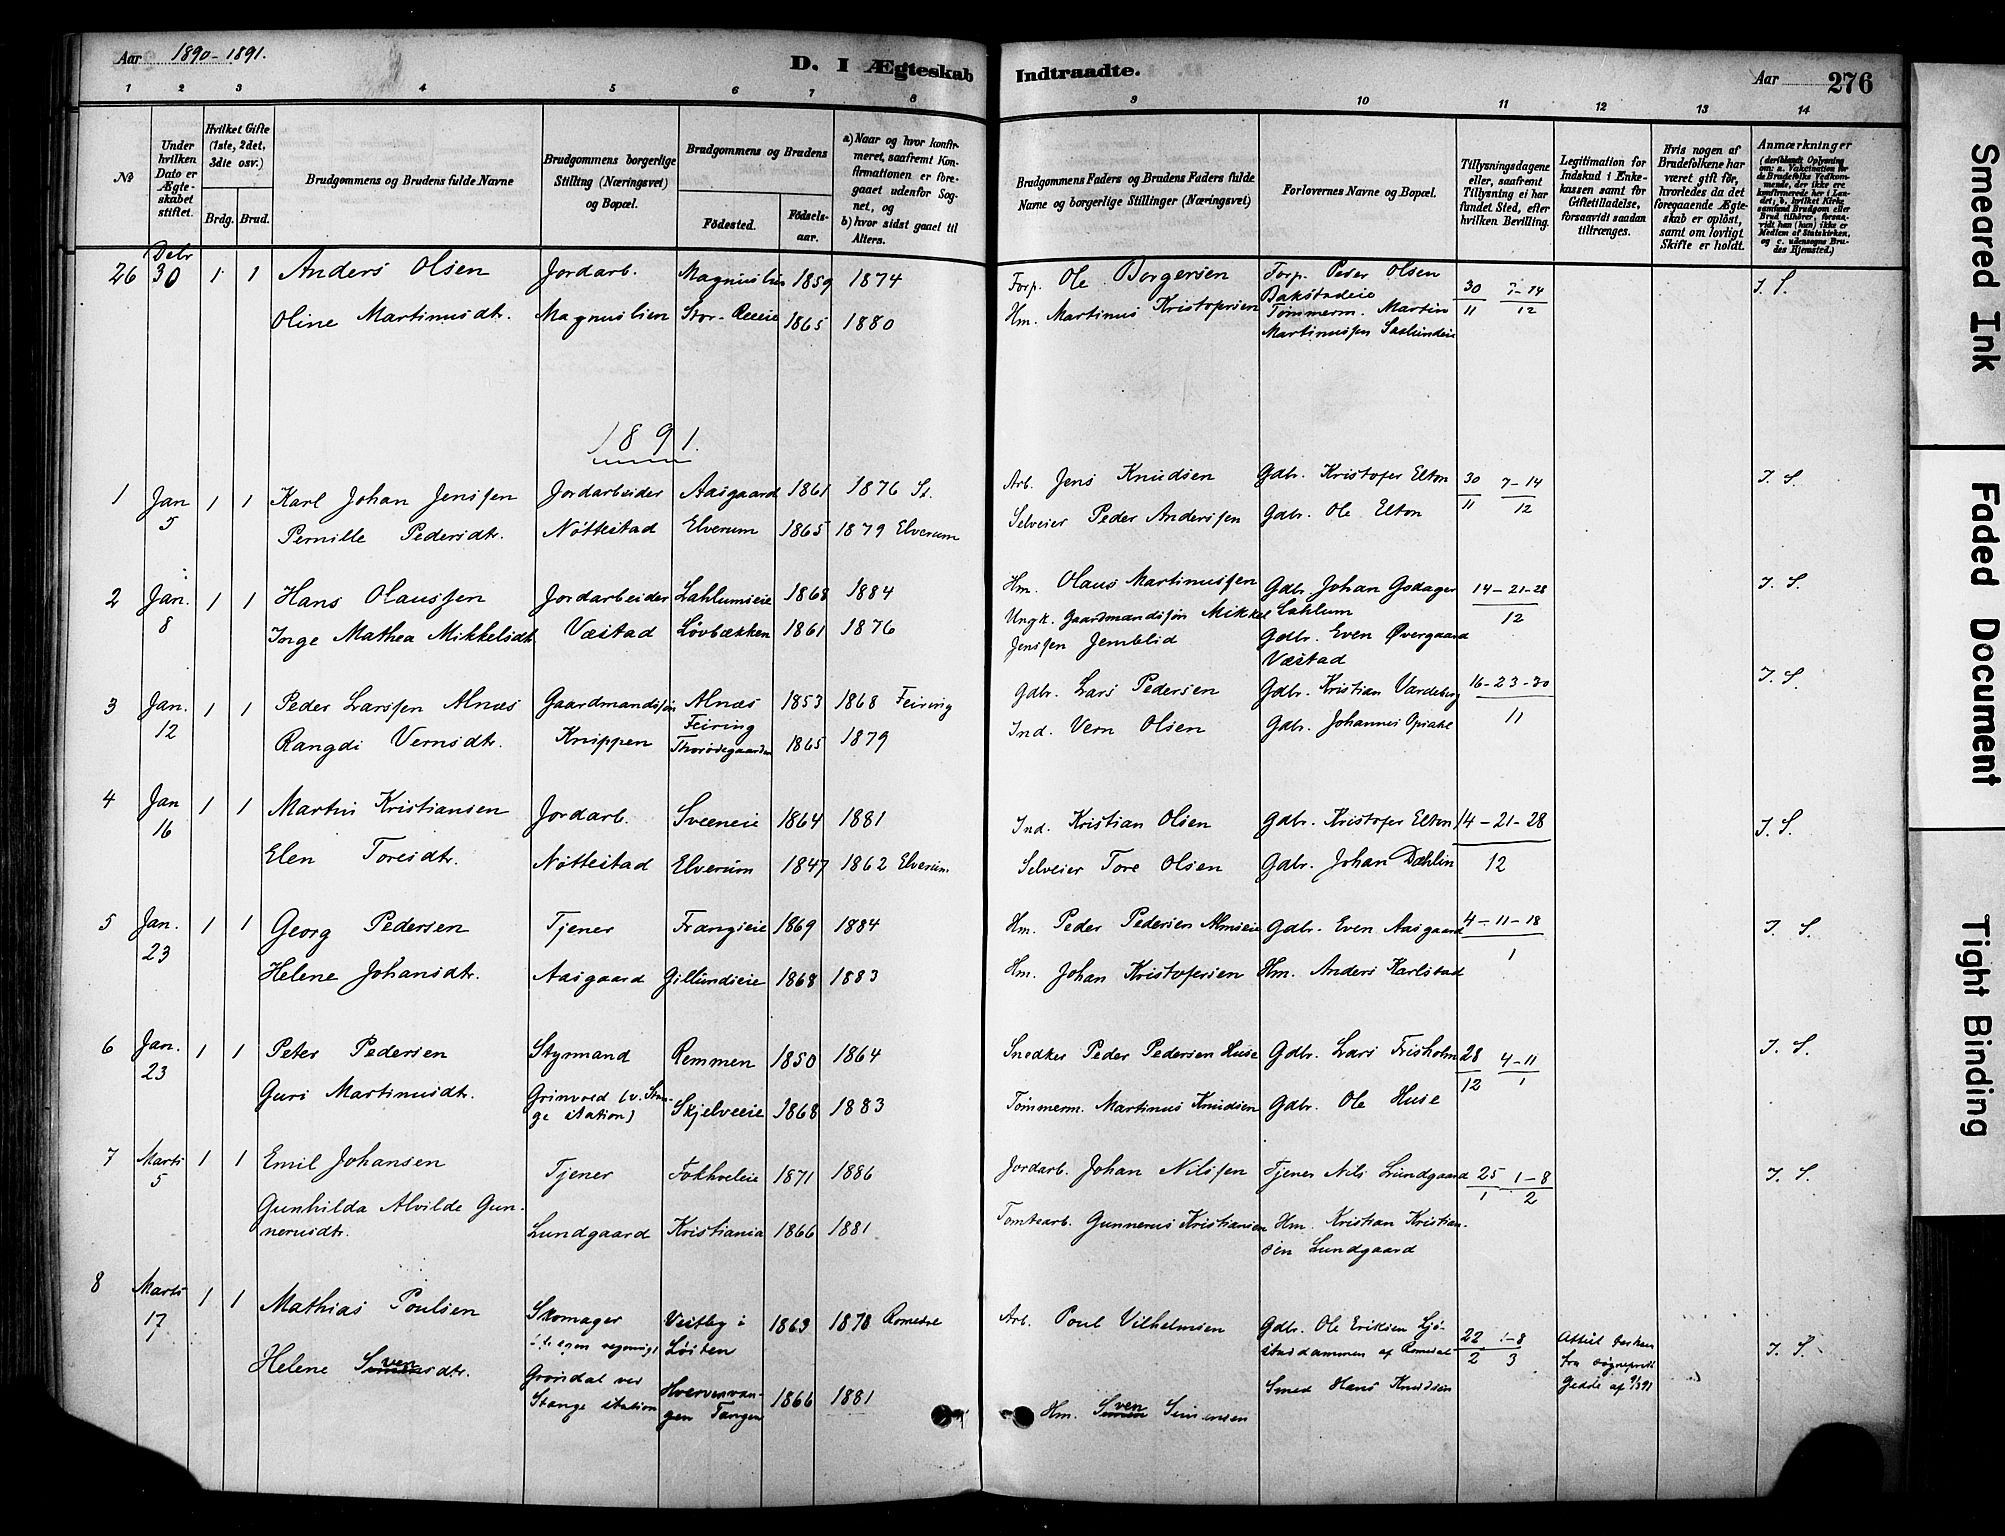 Aar 1890-1891.
D. I Ægteskab Indtraadte.
Aar 276
1 2 3 4 5 6 7 8 9 10 11 12 13 14
No
Under hvilken Dato er Ægteskabet stiftet.
Hvilket Gifte (1ste, 2det, 3die osv.)
Brdg. Brud.
Brudgommens og Brudens fulde Navne
Brudgommens borgerlige Stilling (Næringsvei) og Bopæl.
Brudgommens og Brudens
Fødested. Fødselsaar.
a) Naar og hvor konfirmeret, saafremt Konfirmationen er foregaaet udenfor Sognet, og
b) hvor sidst gaaet til Alters.
Brudgommens Faders og Brudens Faders fulde Navne og borgerlige Stillinger (Næringsvei)
Forlovernes Navne og Bopæl.
Tillysningsdagene eller, saafremt Tillysning ei har fundet Sted, efter hvilken Bevilling.
Legitimation for Indskud i Enkekassen samt for Giftetilladelse, forsaavidt saadan tiltrænges.
Hvis nogen af Brudefolkene har været gift før, hvorledes da det foregaaende Ægteskab er opløst, samt om lovligt Skifte er holdt.
Anmærkninger
(deriblandt Oplysning om: a. Vakcination for de Brudefolks Vedkommende, der ikke ere konfirmerede her i Landet; b. hvilket Kirkesamfund Brudgom eller Brud tilhører, forsaavidt han (hun) ikke er Medlem af Statskirken, og c. udensogns Brudes Hjemsted.)
26 Debr 30 1 1 Anders Olsen Jordarb. Magnuslien 1859 1874 Forp. Ole Borgersen Forp. Peder Olsen Bakstadeie 30/11 7-14/12 I. S.
Oline Martinusdtr. Magnuslien Stor-Reeeie 1865 1880 Hm. Martinus Kristofersen Tømmerm. Martin Martinussen Saelundeie
1891.
1 Jan 5 1 1 Karl Johan Jenssen Jordarbeider Aasgaard 1861 1876 St. Arb. Jens Knudsen Gdbr. Kristofer Elton 30/11 7-14/12 I. S.
Pernille Pedersdtr. Nöttestad Elverum 1865 1879 Elverum Selveier Peder Anderssen Gdbr. Ole Elton
2 Jan. 8 1 1 Hans Olaussen Jordarbeider Lahlumseie 1868 1884 Hm. Olaus Martinussen Gdbr Johan Godager Lahlum 14-21-28/12 I. S.
Inge Mathea Mikkelsdtr. Væstad Løvbækken 1861 1876 Ungk. Gaardmandssøn Mikkel Jenssen Jemblid Gdbr. Even Øvergaard Væstad
3 Jan. 12 1 1 Peder Larssen Alnæs Gaardmandssøn Alnæs Feiring 1853 1868 Feiring Gdbr. Lars Pedersen Gdbr. Kristian Vardeberg 16-23-30/11 I. S.
Rangdi Vernsdtr. Knippen Thorødegaarden 1865 1879 Ind. Vern Olsen Gdbr. Johannes Opsahl
4 Jan 16 1 1 Martin Kristiansen Jordarb. Sveeneie 1864 1881 Ind. Kristian Olsen Gdbr. Kristofer Elton 14-21-28/12 I. S.
Elen Toresdtr. Nöttestad Elverum 1847 1862 Elverum Selveier Tore Olsen Gdbr. Johan Dæhlin
5 Jan. 23 1 1 Georg Pedersen Tjener Frangseie 1869 1884 Hm. Peder Pedersen Almseie Gdbr. Even Aasgaard 4-11-18/1 I. S.
Helene Johansdtr. Aasgaard Gillundseie 1868 1883 Hm. Johan Kristofersen Hm. Anders Karlstad
6 Jan. 23 1 1 Peter Pedersen Styrmand Remmen 1850 1864 Snedker Peder Pedersen Huse Gdbr. Lars Frisholm 28/12 4-11/1 I. S.
Guri Martinusdtr. Grimvold (v. Stange station) Skjelveeie 1868 1883 Tømmerm. Martinus Knudsen Gdbr. Ole Huse
7 Marts 5 1 1 Emil Johansen Tjener Fokholeie 1871 1886 Jordarb. Johan Nilssen Tjener Nils Lundgaard 25/1 1-8/2 I. S.
Gunhilda Alvilde Gunnerusdtr. Lundgaard Kristiania 1866 1881 Tomtearb. Gunnerus Kristiansen Hm. Kristian Kristiansen Lundgaard
8 Marts 17 1 1 Mathias Poulsen Skomager Vestby i Løiten 1863 1878 Romedal Arb. Poul Vilhelmsen Gdbr. Ole Eriksen Ljöstaddammen af Romedal 22/2 1-8/3 Attest her fra sognepræst Gedde af 9/3 91 I. S.
Helene Svensdtr. Grøndal ved Stange station Hvervenvangen Tangen 1866 1881 Hm. Sven Simensen Smed Hans Knudsen
Smeared Ink
Faded Document
Tight Binding